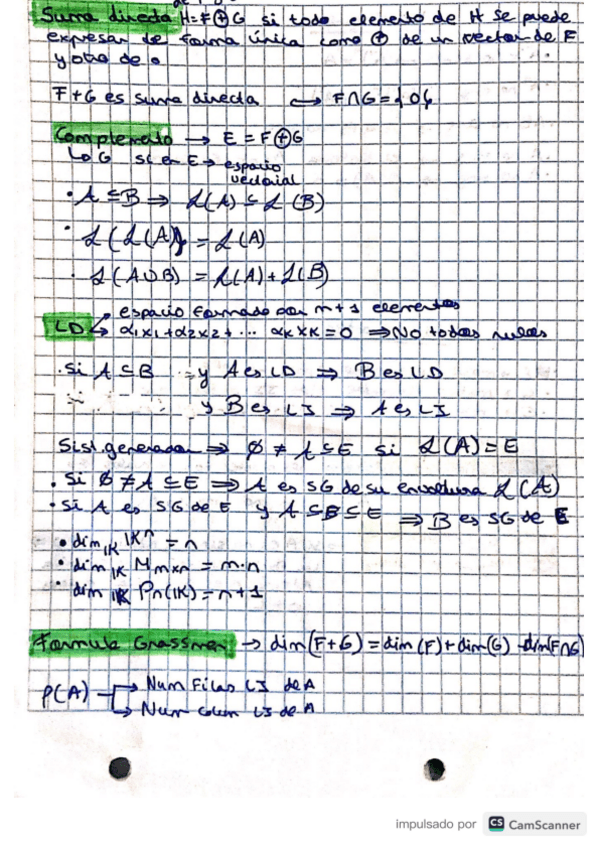 Suma directa H=F⊕G si todo elemento de H se puede
expresar de forma única como ⊕ de un vector de F
y otro de G
F+G es suma directa ⟷ F∩G={0}
Complemento → E=F⊕G
↳ G si en E → espacio
vectorial
• A⊆B ⇒ L(A)⊆L(B)
• L(L(A)) = L(A)
• L(A∪B) = L(A)+L(B)
LD → espacio formado por n+1 elementos
↳ α1x1+α2x2+... αkxk=0 ⇒ No todas nulas
• Si A⊆B y A es LD ⇒ B es LD
Si y B es LI ⇒ A es LI
Sist. generador ⇒ ∅≠A⊆E si L(A)=E
• Si ∅≠A⊆E ⇒ A es SG de su envoltura L(A)
• Si A es SG de E y A⊆B⊆E ⇒ B es SG de E
• dim IK IKⁿ = n
• dim IK Mmxn = m·n
• dim IK Pn(IK)=n+1
Formula Grassman → dim(F+G)=dim(F)+dim(G)-dim(F∩G)
ρ(A) → Num Filas LI de A
↳ Num colum LI de A
impulsado por CS CamScanner